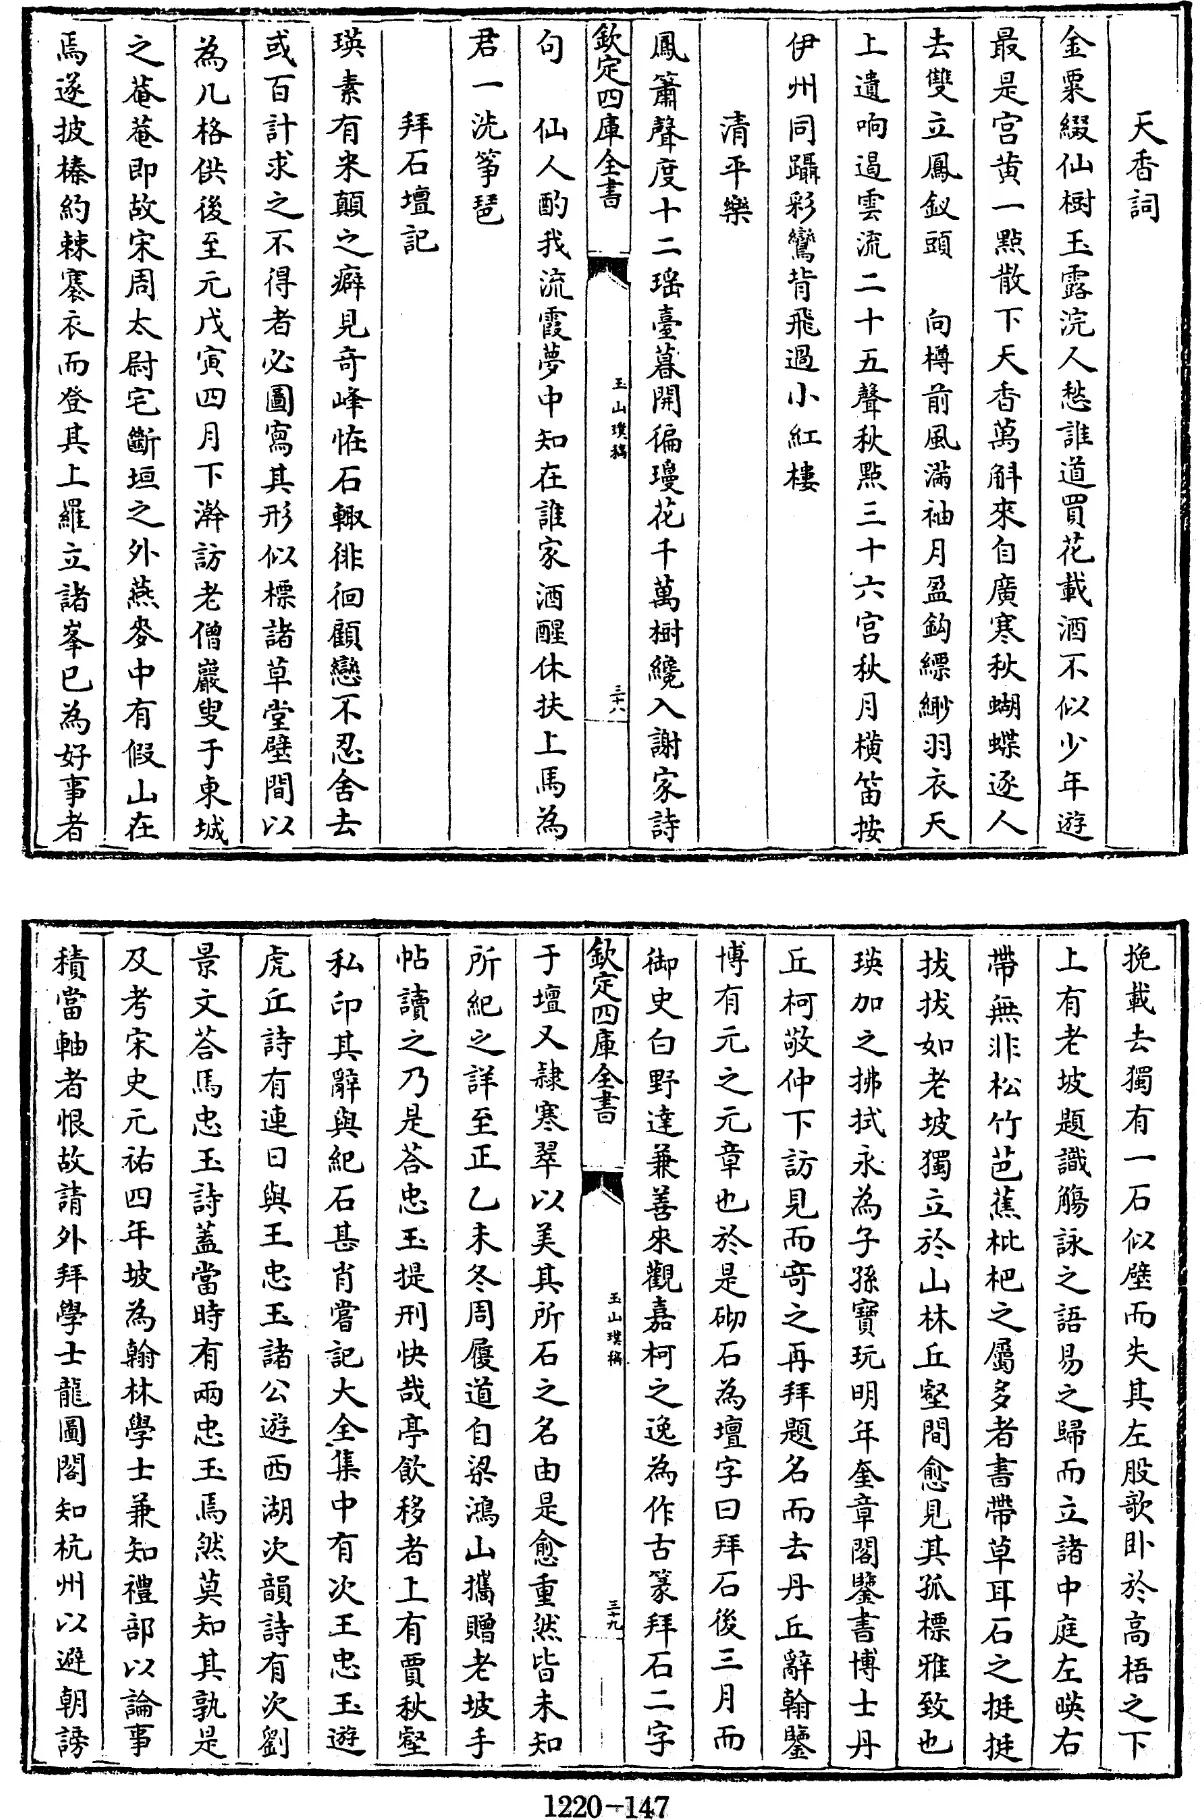 天香詞
金粟綴仙樹玉露浣人愁誰道買花載酒不似少年遊
最是宫黄一點散下天香萬斛來自廣寒秋蝴蝶逐人
去雙立鳳釵頭　向樽前風滿袖月盈鈎縹緲羽衣天
上遺响遏雲流二十五聲秋點三十六宫秋月橫笛按
伊州同躡彩鸞背飛過小紅樓
清平樂
鳳簫聲度十二瑶臺暮開徧瓊花千萬樹纔入謝家詩
欽定四庫全書
玉山璞稿
三十八
句　仙人酌我流霞夢中知在誰家酒醒休扶上馬為
君一洗箏琶
拜石壇記
瑛素有米顛之癖見奇峰恠石輙徘徊顧戀不忍舍去
或百計求之不得者必圖寫其形似標諸草堂壁間以
為几格供後至元戊寅四月下澣訪老僧巖叟于東城
之菴菴即故宋周太尉宅斷垣之外燕麥中有假山在
焉遂披榛約棘褰衣而登其上羅立諸峯已為好事者
挽載去獨有一石似壁而失其左股欹卧於高梧之下
上有老坡題識觴詠之語易之歸而立諸中庭左暎右
帶無非松竹芭蕉枇杷之屬多者書帶草耳石之挺挺
拔拔如老坡獨立於山林丘壑間愈見其孤標雅致也
瑛加之拂拭永為子孫寶玩明年奎章閣鑒書博士丹
丘柯敬仲下訪見而奇之再拜題名而去丹丘辭翰鑒
博有元之元章也於是砌石為壇字曰拜石後三月而
御史白野達兼善來觀嘉柯之逸為作古篆拜石二字
欽定四庫全書
玉山璞稿
三十九
于壇又隸寒翠以美其所石之名由是愈重然皆未知
所紀之詳至正乙未冬周履道自梁鴻山攜贈老坡手
帖讀之乃是荅忠玉提刑快哉亭飲移者上有賈秋壑
私印其辭與紀石甚肖嘗記大全集中有次王忠玉遊
虎丘詩有連日與王忠玉諸公遊西湖次韻詩有次劉
景文荅馬忠玉詩蓋當時有兩忠玉焉然莫知其孰是
及考宋史元祐四年坡為翰林學士兼知禮部以論事
積當軸者恨故請外拜學士龍圖閣知杭州以避朝謗
1220-147